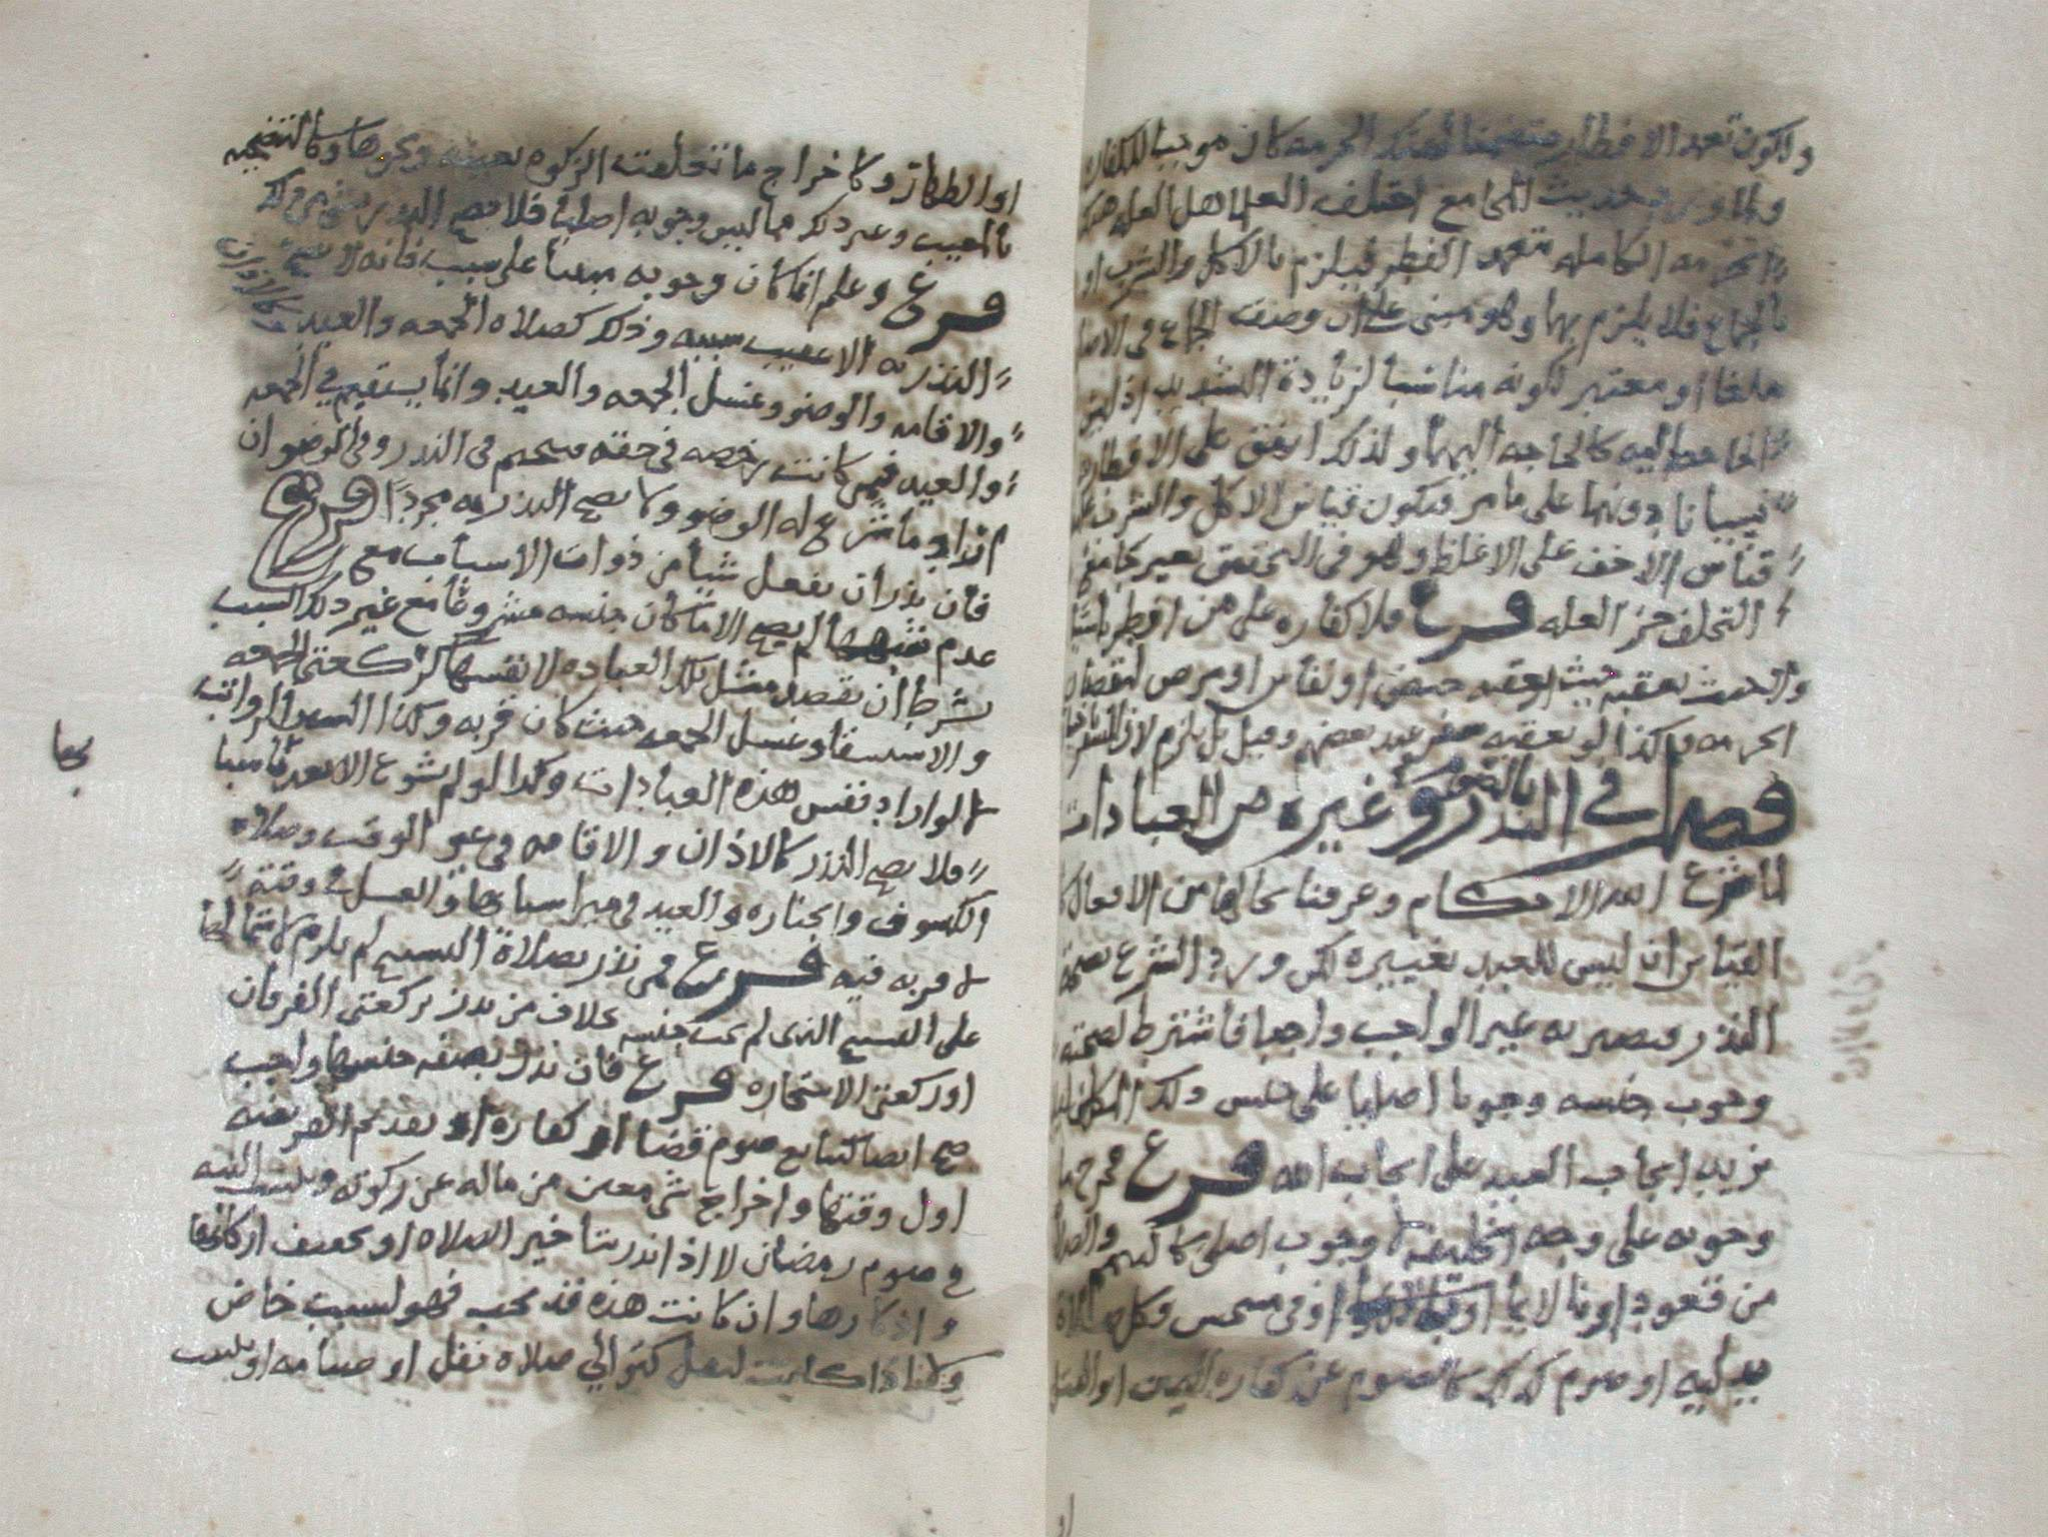 ولكون تعمد الافطار متضمنا لهتك الحرمه كان موجبا للكفاره
بحديث المجامع اختلف العلما هل العله هتك
الحرمه الكامله بتعمد الفطر فيلزم بالاكل والشرب او
بالجماع فلا يلزم بهما وهو مبنى على ان وصف الجماع في الاصل
ملغا او معتبر لكونه مناسبا لزيادة التشديد اذ ليس
الحاجه اليه كالحاجه اليهما ولذلك اتفق على الافطار
نسيانا دونهما على ما مر فيكون قياس الاكل والشرب
قياس الاخف على الاغلظ وهو في التحقيق بغير جامع
التخلف جزء العله فرع فلا كفاره على من افطر ناسيا
والحنث بعقبه حيث بعقبه حيض او نفاس او مرض لنقصان
الحرمه وكذا لو بعقبه سفر عند بعضهم وقيل بل يلزم لان السفر
فصل في النذر بالصوم وغيره من العبادات
لما شرع الله الاحكام وعرفنا محالها من الافعال كان
القياس ان ليس للعبد تغييره لكن ورد الشرع بصحة
النذر فيصير به غير الواجب واجبا فاشترط لصحته
وجوب جنسه وجوبا اصليا على جنس ذلك المكلف ليلا
يزيد ايجاب العبد على ايجاب الله فرع فخرج ما
وجوبه على وجه الخليفه لا وجوب اصلي كالتيمم والصلاة
من قعود او بالايما او في مسجد وكل صلاة
بدليه او صوم كذلك كالصوم عن كفاره اليمين او القتل
او الظهار وكاخراج ما تعلقت الزكوه بعينه ونحوها وكالتضحيه
بالمعيب وغير ذلك مما ليس وجوبه اصليا فلا يصح النذر بشى من ذلك
فرع وعلم انما كان وجوبه مبنيا على سبب فانه لا يصح
النذر به الا عقيب سببه وذلك كصلاة الجمعه والعيد كالاذان
والاقامه والوضو وغسل الجمعه والعيد وانما يستقيم في الجمعه
والعيد فيمن كانت رخصه في حقه فيجب في النذر وفي الوضو ان
اراد به ما شرع له الوضو ولا يصح النذر به مجردا فرع
فان نذر ان يفعل شيا من ذوات الاسباب مع
عدم سببها لم يصح الا ما كان جنسه مشروعا مع غير ذلك السبب
بشرط ان يقصد مثل تلك العباده لا نفسها كركعتى الجمعه
والاستسقا وغسل الجمعه حيث كان قربه وكذا السنن الرواتب
لا لو اراد نفس هذه العبادات وكذا لو لم يشرع الا بعد اسبابها
فلا يصح النذر كالاذان والاقامه في غير الوقت وصلاة
الكسوف والجنازه والعيد في غير اسبابها والغسل في وقته
لا قربه فيه فرع فمن نذر بصلاة التسبيح لم يلزم لاشتمالها
على التسبيح الذى لم يجب جنسه بخلاف من نذر بركعتى الفرقان
او ركعتى الاستخاره فرع فان نذر بصفه جنسها واجب
صح ايضا كتتابع صوم قضا او كفاره او تقديم الفريضه
اول وقتها واخراج شى معين من ماله عن زكوته وتبييت النيه
في صوم رمضان لا اذا نذر بتاخير الصلاه او تخفيف اركانها
واذكارها وان كانت هذه قد تجب فهو لسبب خاص
وكذا اذا كانت لنفل كتوالي صلاة نفل او صيامه او تبييت
نجعا